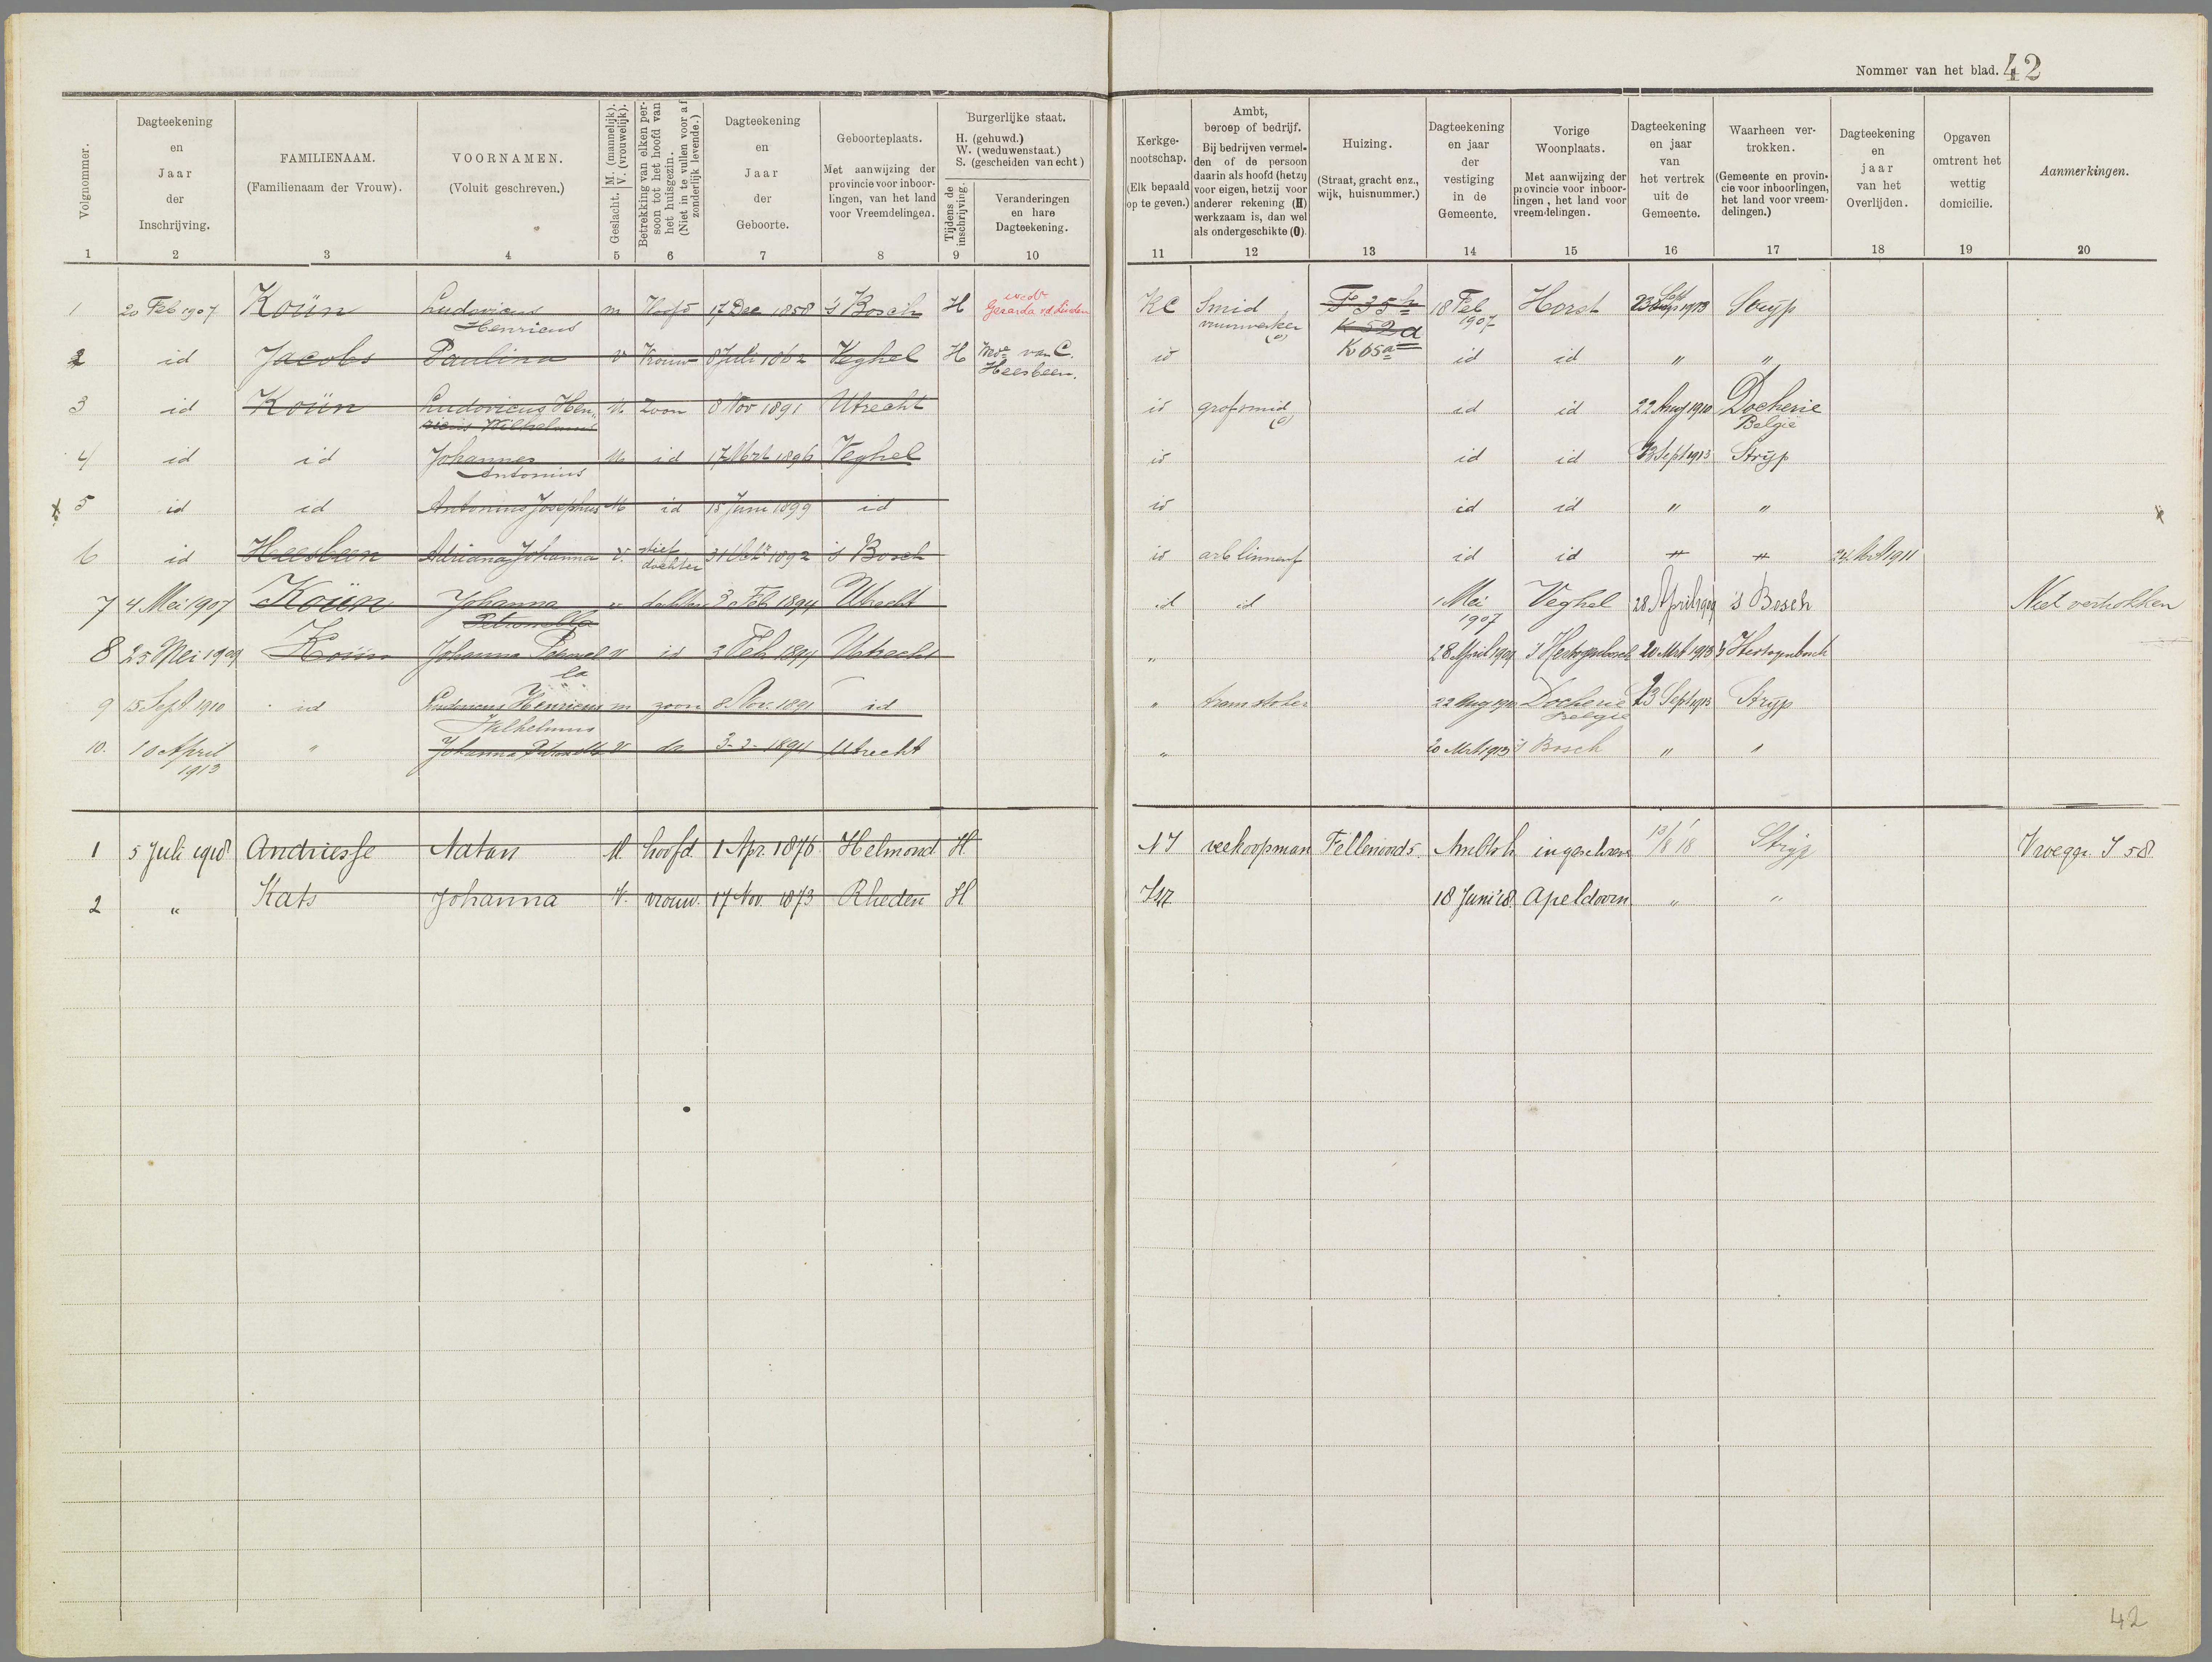 Nommer van het blad. 42
Volgnommer.
Dagteekening en Jaar der Inschrijving.
FAMILIENAAM.
(Familienaam der Vrouw).
VOORNAMEN.
(Voluit geschreven.)
Geslacht. M. (mannelijk). V. (vrouwelijk).
Betrekking van elken persoon tot het hoofd van het huisgezin. (Niet in te vullen voor afzonderlijk levende.)
Dagteekening en Jaar der Geboorte.
Geboorteplaats.
Met aanwijzing der provincie voor inboorlingen, van het land voor Vreemdelingen.
Burgerlijke staat.
H. (gehuwd.)
W. (weduwenstaat.)
S. (gescheiden van echt)
Tijdens de inschrijving.
Veranderingen en hare Dagteekening.
Kerkgenootschap.
(Elk bepaald op te geven.)
Ambt, beroep of bedrijf.
Bij bedrijven vermelden of de persoon daarin als hoofd (hetzij voor eigen, hetzij voor anderer rekening (H) werkzaam is, dan wel als ondergeschikte (O).
Huizing.
(Straat, gracht enz., wijk, huisnummer.)
Dagteekening en jaar der vestiging in de Gemeente.
Vorige Woonplaats.
Met aanwijzing der provincie voor inboorlingen, het land voor vreemdelingen.
Dagteekening en jaar van het vertrek uit de Gemeente.
Waarheen vertrokken.
(Gemeente en provincie voor inboorlingen, het land voor vreemdelingen.)
Dagteekening en jaar van het Overlijden.
Opgaven omtrent het wettig domicilie.
Aanmerkingen.
1 2 3 4 5 6 7 8 9 10 11 12 13 14 15 16 17 18 19 20
1 20 Feb 1907 Koün Ludovicus Henricus m Hoofd 17 Dec 1858 's Bosch H wedr Gerarda vd Linden KC Smid vuurwerker (o) F 35h K 52a K 65a 18 Feb 1907 Horst 23 Sept 1913 Strijp
2 id Jacobs Paulina v Vrouw 8 Juli 1862 Veghel H Wede van C. Heesbeen. id id id " "
3 id Koün Ludovicus Henricus Wilhelmus M Zoon 8 Nov 1891 Utrecht id grofsmid (o) id id 22 Aug 1910 Docherie België
4 id id Johannes Antonius M id 17 Mrt 1896 Veghel id id id 23 Sept 1913 Strijp
5 id id Antonius Josephus M id 15 Juni 1899 id id id id " "
6 id Heesbeen Adriana Johanna v. stief dochter 31 1892 's Bosch id arb linnenf id id " " 24 Mrt 1911
7 4 Mei 1907 Koün Johanna Petronella v dochter 3 Feb 1894 Utrecht id id 1 Mei 1907 Veghel 28 April 1909 's Bosch Niet vertrokken
8 25 Mei 1909 Koün Johanna Petronella v id 3 Feb 1894 Utrecht " 28 April 1909 's Hertogenbosch 20 Mrt 1913 's Hertogenbosch
9 15 Sept 1910 id Ludovicus Henricus Wilhelmus m zoon 8 Nov. 1891 id " tramstoker 22 Aug 1910 Docherie België 23 Sept 1913 Strijp
10. 10 April 1913 " Johanna Petronella V do 3-2-1894 Utrecht " 20 Mrt 1913 's Bosch " "
1 5 Juli 1918 Andriesse Natan M. hoofd. 1 Apr. 1876 Helmond H. NI veekoopman Fellenoord 5. Ambtsh. ingeschreven 13/8 18 Strijp Vroeger. I 58.
2 " Kats Johanna V. vrouw. 17 Nov. 1873 Rheden H. 18 Juni '18. Apeldoorn " "
42